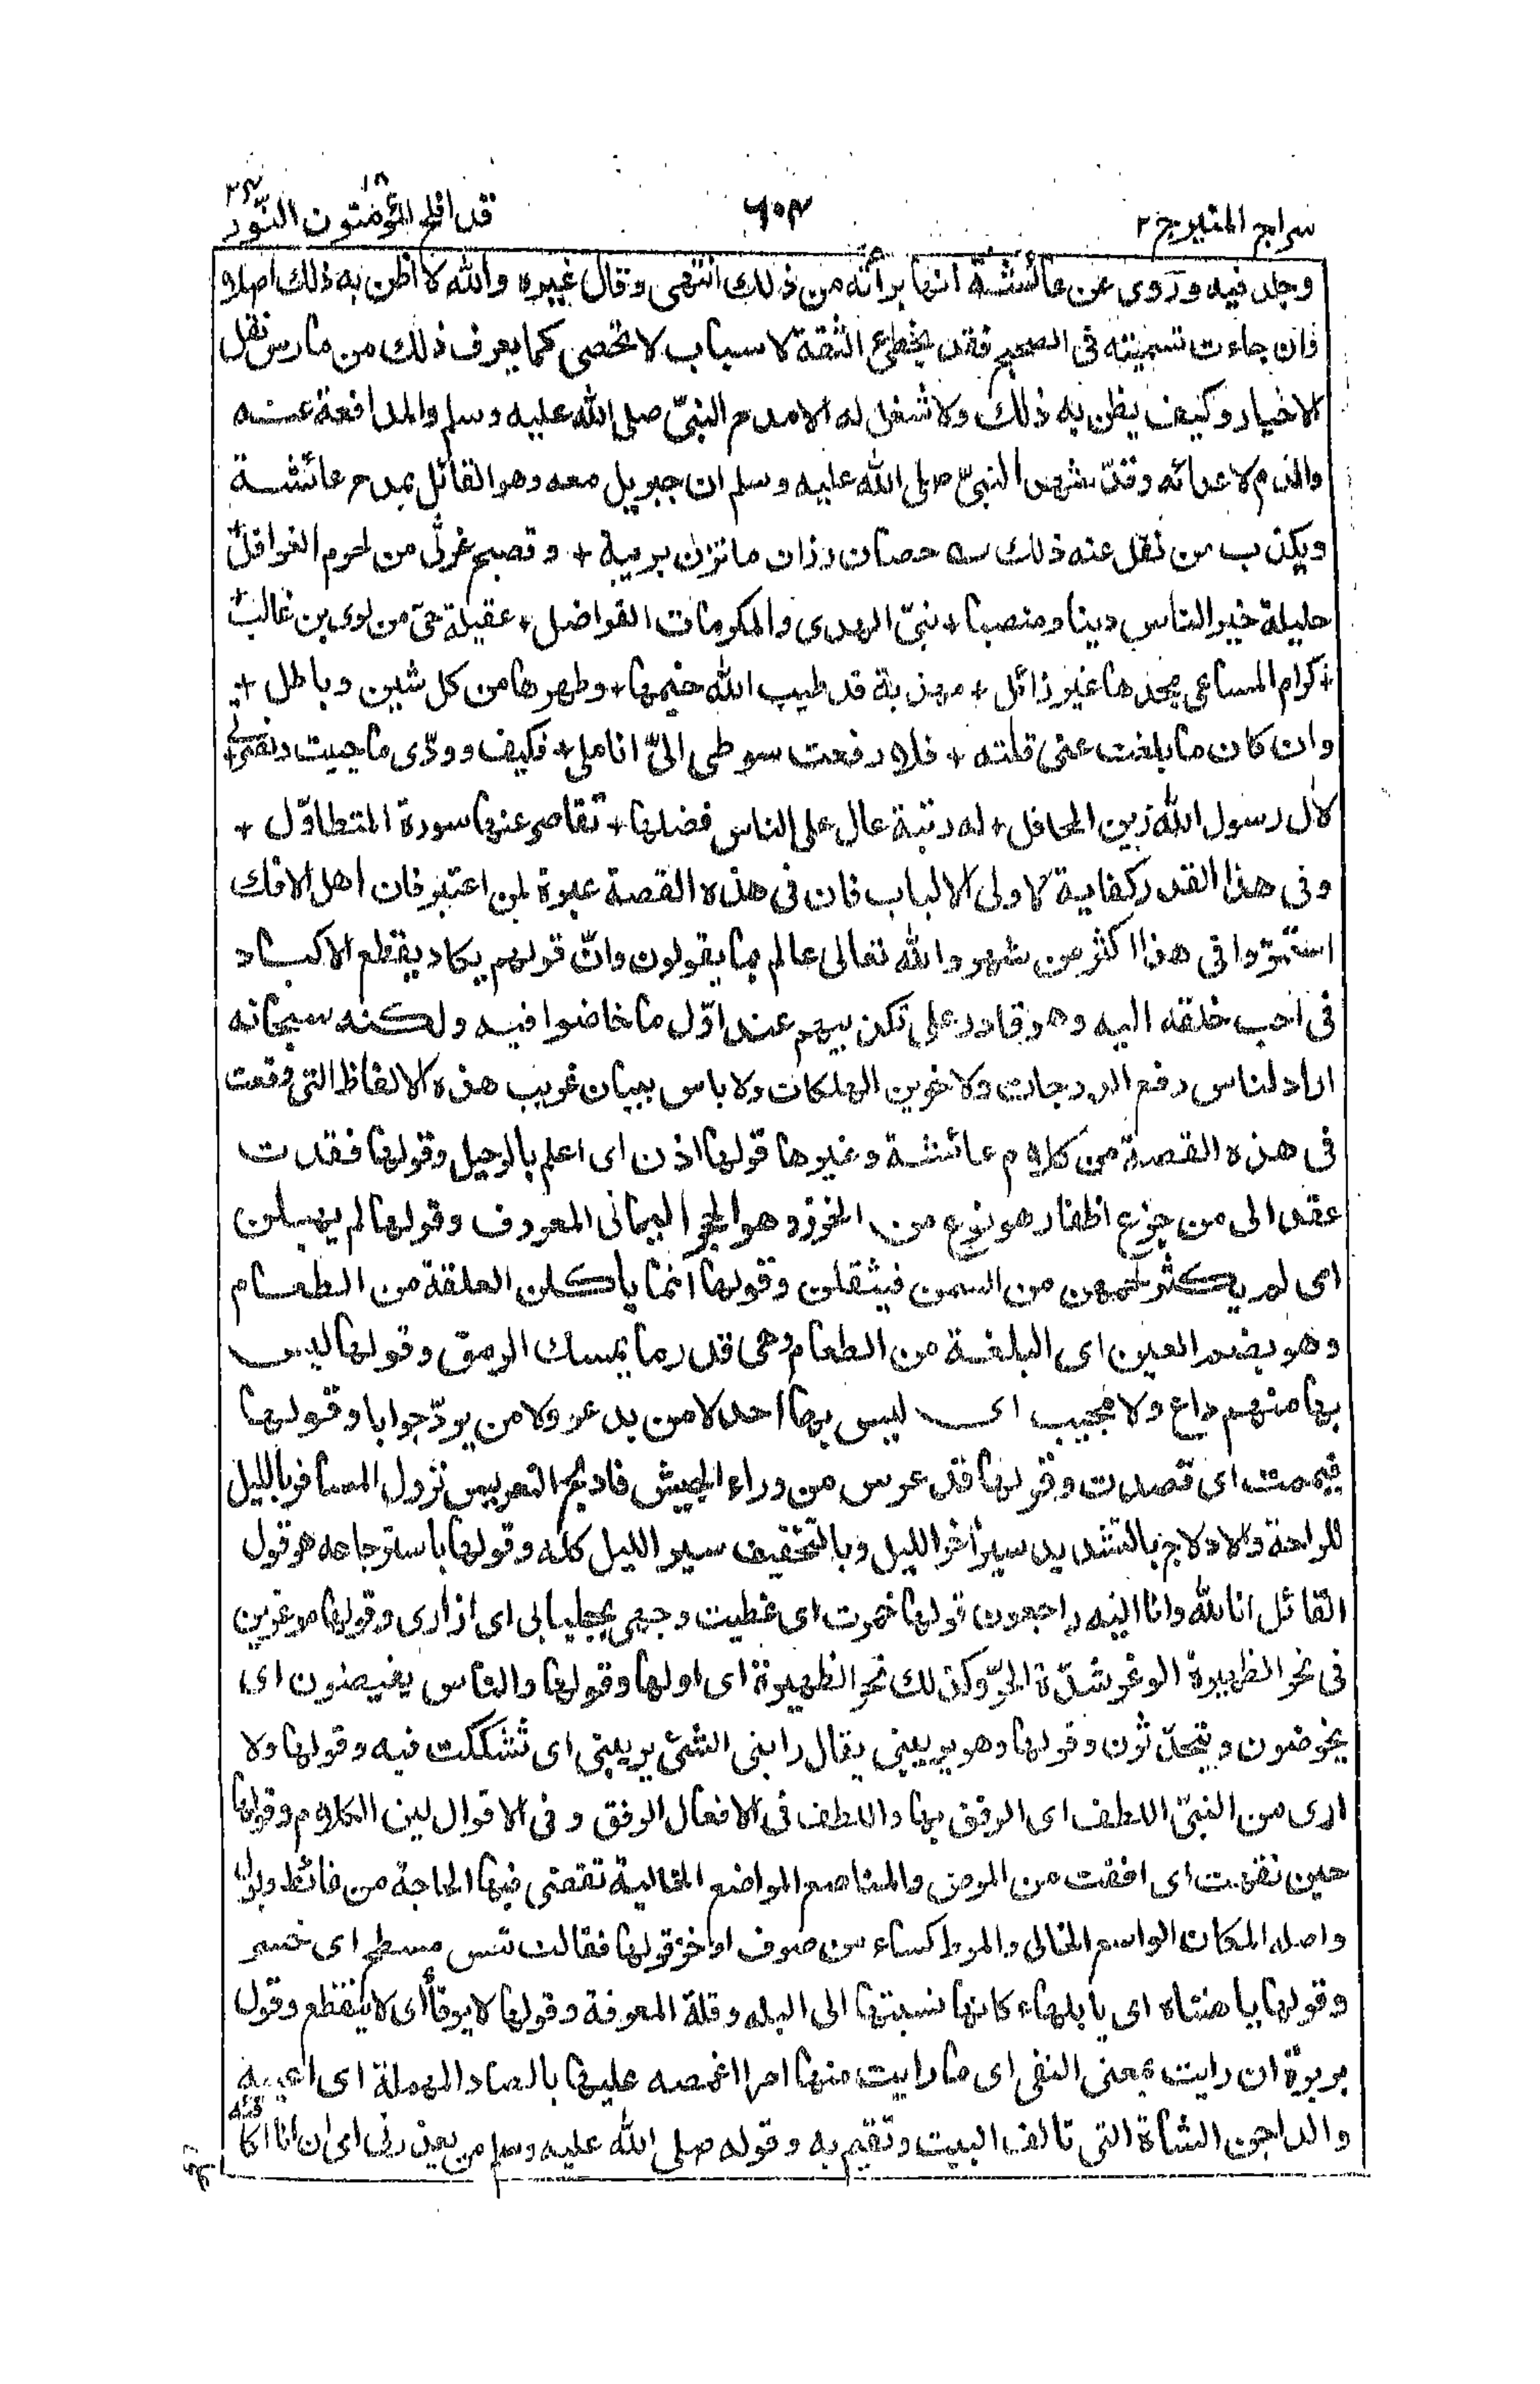 سراج المنير ج ٢ ٦٠٤ قد افلح المؤمنون ١٨ النور ٢٤
وجلد فيه وروى عن عائشة انها برأته من ذلك انتهى وقال غيره والله لا اظن به ذلك اصلا
فان جاءت تسميته فى الصحيح فقد يخطئ الثقة لاسباب لا تحصى كما يعرف ذلك من مارس نقل
الاخبار وكيف يظن به ذلك ولا شغل له الا مدح النبىّ صلى الله عليه وسلم والمدافعة عنه
والذم لاعدائه وقد شهد النبىّ صلى الله عليه وسلم ان جبريل معه وهو القائل بمدح عائشة
ويكذب من نقل عنه ذلك ؎ حصان رزان ما تزن بريبة + وتصبح غرثى من لحوم الغوافل +
حليلة خير الناس دينا ومنصبا + نبىّ الهدى والمكرمات الفواضل + عقيلة حىّ من لوى بن غالب +
+ كرام المساعى مجدها غير زائل + مهذبة قد طيب الله خيمها + وطهرها من كل شين وباطل +
وان كان ما بلغت عنى قلته + فلا رفعت سوطى الىّ اناملى + فكيف وودّى ما حييت ونصرتى +
لآل رسول الله زين المحافل + له رتبة عال على الناس فضلها + تقاصر عنها سورة المتطاوّل +
وفى هذا القدر كفاية لاولى الالباب فان فى هذه القصة عبرة لمن اعتبر فان اهل الافك
استمرّوا فى هذا اكثر من شهر والله تعالى عالم بما يقولون وانّ قولهم يكاد يقطع الاكباد
فى احب خلقه اليه وهو قادر على تكذيبهم عند اوّل ما خاضوا فيه ولكنه سبحانه
اراد لناس رفع الدرجات ولاخرين الهلكات ولا باس ببيان غريب هذه الالفاظ التى وقعت
فى هذه القصة من كلام عائشة وغيرها قولها اذن اى اعلم بالرحيل وقولها فقدت
عقدا لى من جزع اظفار هو نوع من الخرز وهو الحجر اليمانى المعروف وقولها لم يهبلن
اى لم يكثر لحمهن من السمن فيثقلن وقولها انما ياكلن العلقة من الطعام
وهو بضم العين اى البلغة من الطعام وهى قدر ما يمسك الرمق وقولها ليس
بها منهم داع ولا مجيب اى ليس بها احد لا من يدعو ولا من يردّ جوابا وقولها
فيممت اى قصدت وقولها قد عرس من وراء الجيش فادلج التعريس نزول المسافر بالليل
للراحة والادلاج بالتشديد سير أخر الليل وبالتخفيف سير الليل كله وقولها باسترجاعه هو قول
القائل انا لله وانا اليه راجعون قولها خمرت اى غطيت وجهى بجلبابى اى ازارى وقولها موغرين
فى نحر الظهيرة الوغر شدّة الحرّ وكذلك نحر الظهيرة اى اولها وقولها والناس يفيضون اى
يخوضون ويتحدّثون وقولها وهو يريبنى يقال رابنى الشئ يريبنى اى تشككت فيه وقولها ولا
ارى من النبىّ اللطف اى الرفق بها واللطف فى الافعال الرفق وفى الاقوال لين الكلام وقولها
حين نقهت اى افقت من المرض والمناصع المواضع الخالية تقضى فيها الحاجة من غائط وبول
واصله المكان الواسع الخالى والمرط كساء من صوف او خز قولها فقالت تعس مسطح اى خسر
وقولها يا هنتاه اى يا بلهاء كانها نسبتها الى البله وقلة المعرفة وقولها لا يرقأ اى لا ينقطع وقول
بريرة ان رايت بمعنى النفى اى ما رايت منها امرا اغمصه عليها بالصاد المهملة اى اعيبه
والداجن الشاة التى تالف البيت وتقيم به وقوله صلى الله عليه وسلم من يعذرنى اى ان انا اكافئه